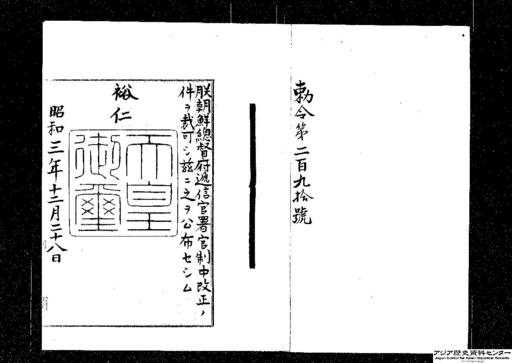 勅令第二百九拾號
朕朝鮮總督府遞信官署官制中改正ノ
件ヲ裁可シ茲ニ之ヲ公布セシム
裕仁
天皇
御璽
昭和三年十二月二十八日
アジア歴史資料センター
Japan Center for Asian Historical Records